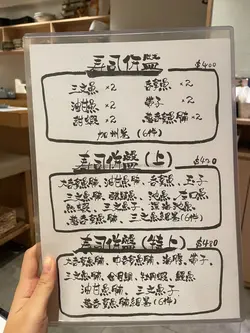 壽司併盤 $400
三文魚 ×2 吞拿魚 ×2
油甘魚 ×2 帶子 ×2
甜蝦 ×2 吞拿魚腩 ×2
加州卷 (6件)
壽司併盤 (上) $420
大吞拿魚腩、油甘魚、吞拿魚、玉子
三文魚腩、
三文魚子、
吞拿魚腩、三文魚細卷 (6件)
壽司併盤 (特上) $480
大吞拿魚腩、中吞拿魚腩、海膽、帶子、
三文魚腩、金目鯛、牡丹蝦、鰻魚
油甘魚、三文魚子
吞拿魚腩細卷 (6件)